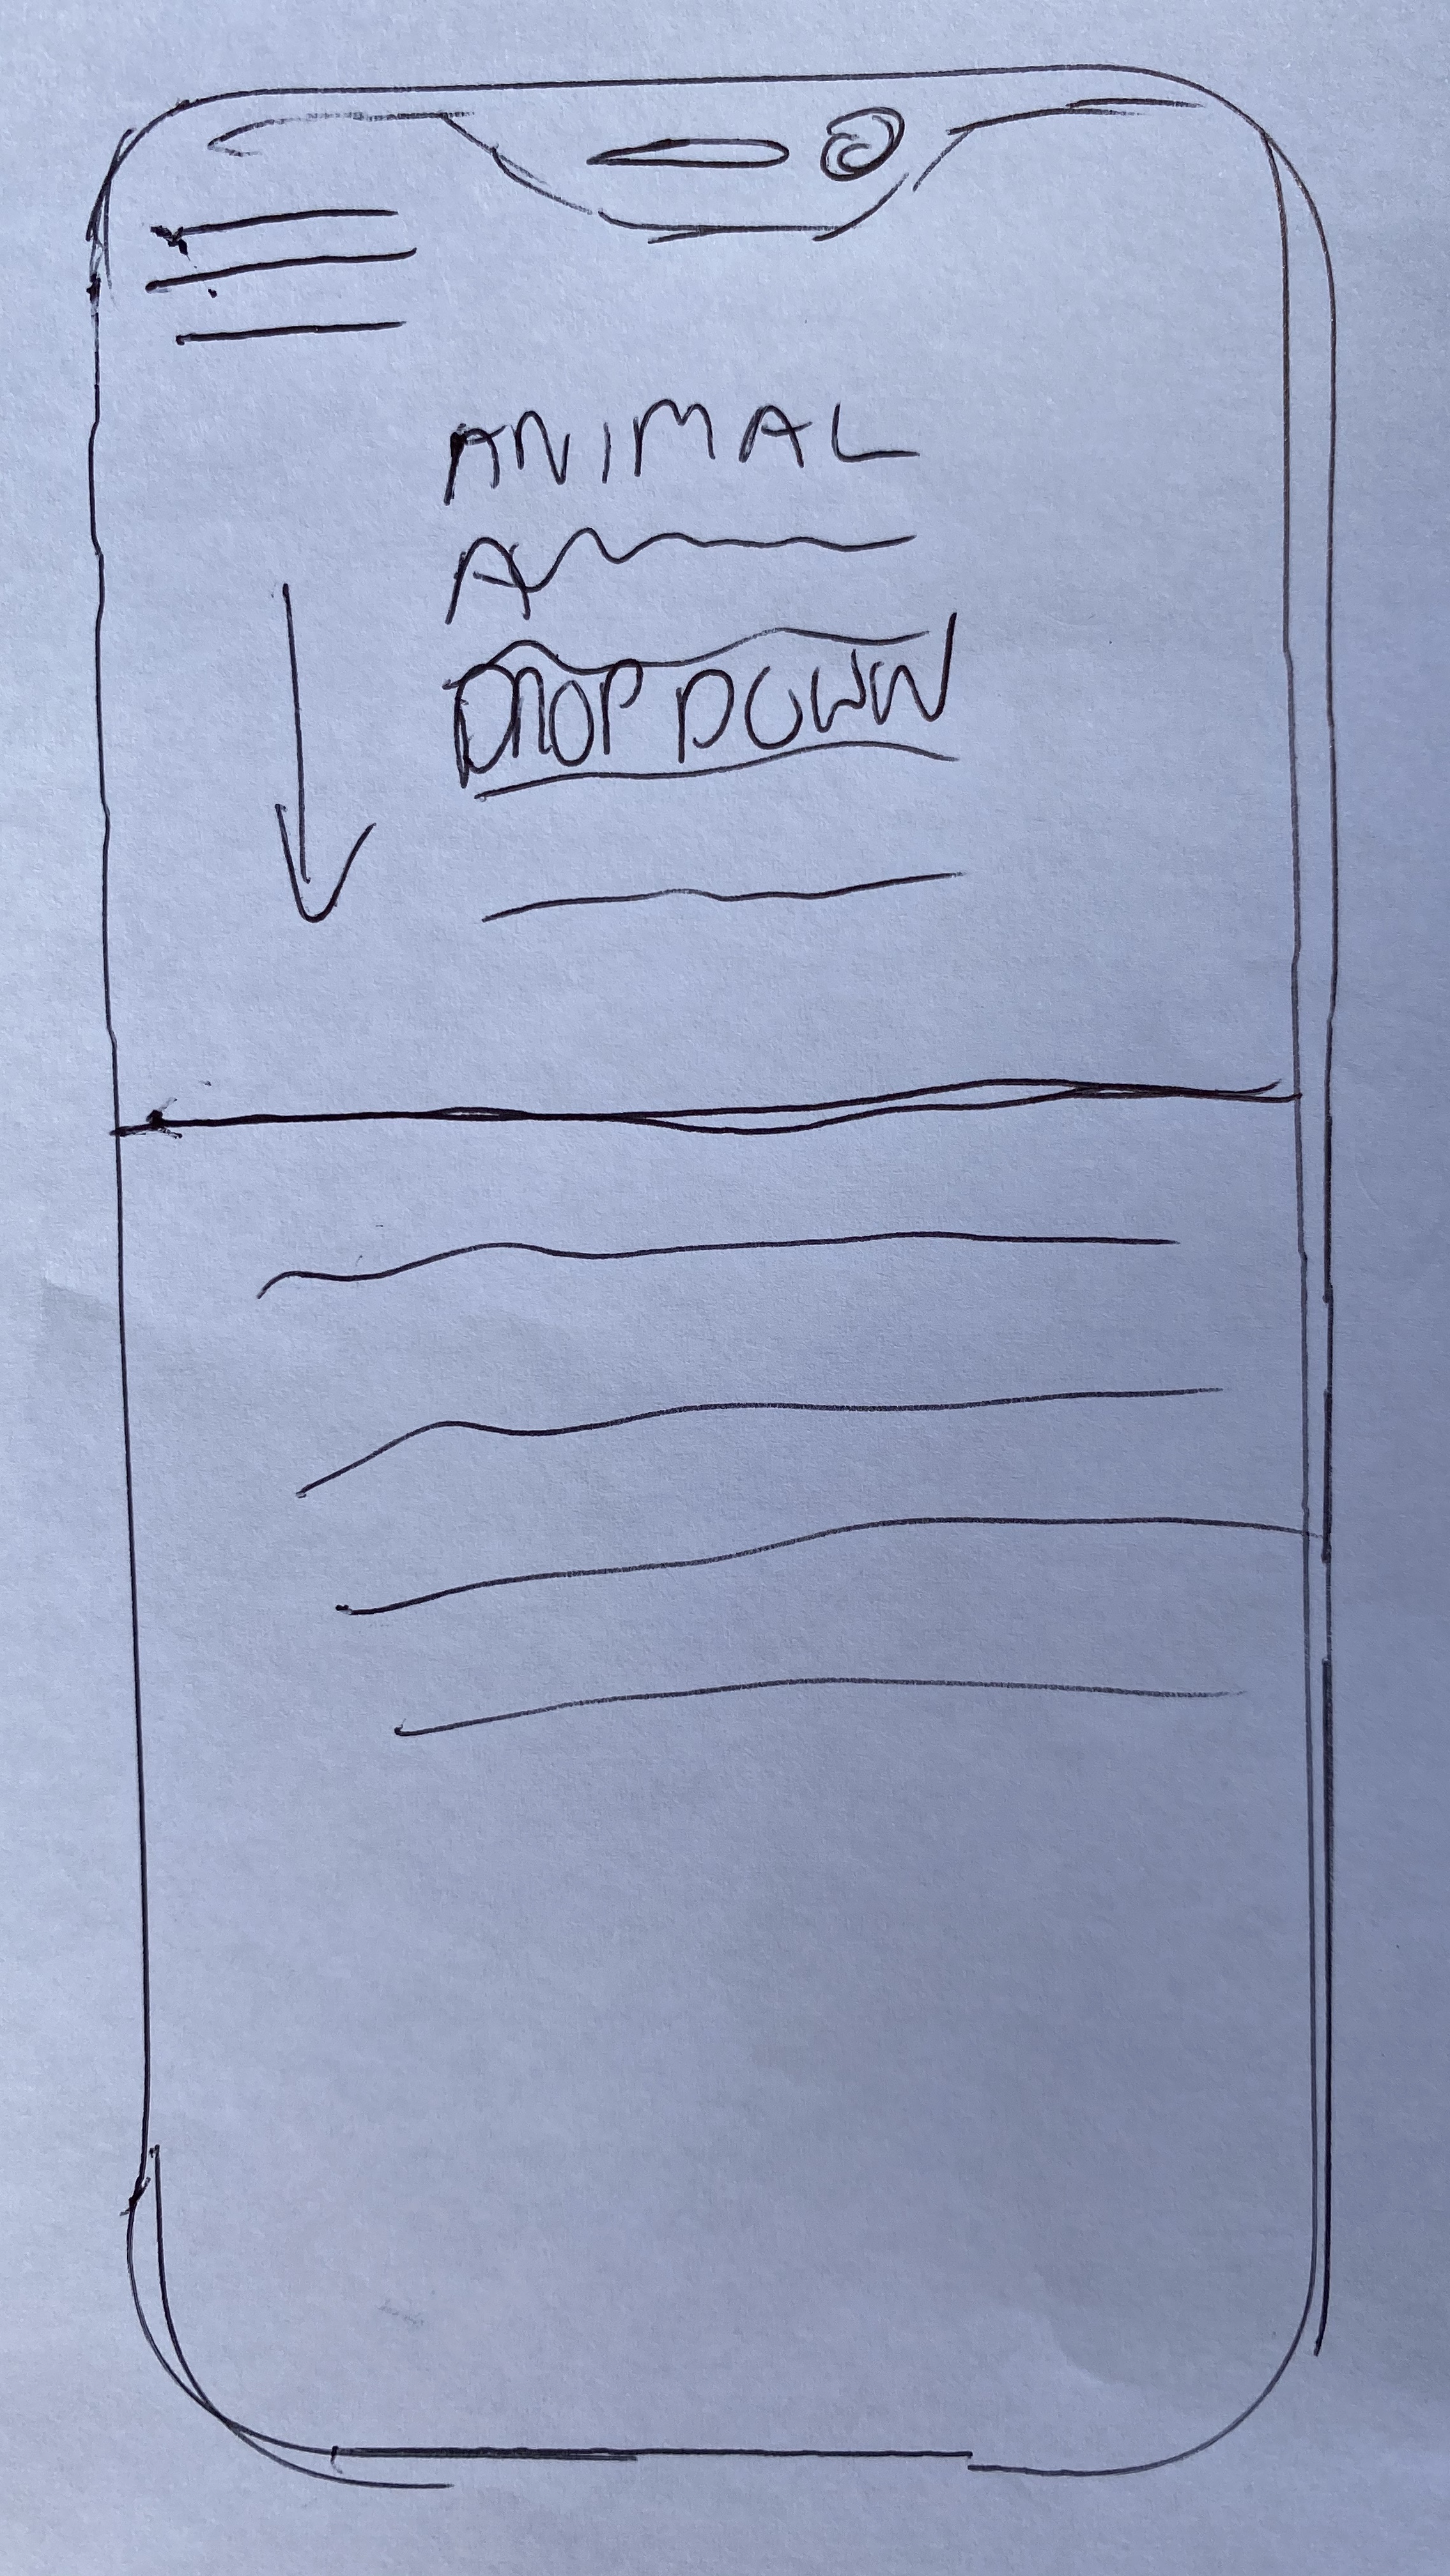 ANIMAL
A
DROP DOWN